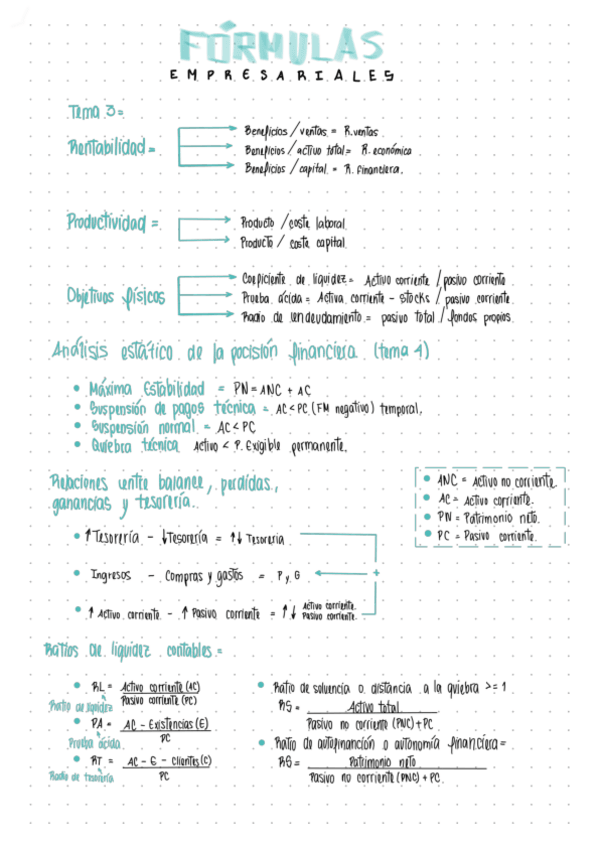 FÓRMULAS
EMPRESARIALES
Tema 3=
Rentabilidad=
Beneficios/ventas = R.ventas.
Beneficios/activo total= R. económica
Beneficios/capital = R. financiera.
Productividad=
Producto/coste laboral
Producto/coste capital.
Objetivos físicos
Coeficiente de liquidez= Activo corriente/pasivo corriente
Prueba ácida= Activa corriente - Stocks/pasivo corriente.
Radio de endeudamiento= pasivo total/fondos propios.
Análisis estático de la pocisión financiera (tema 4)
• Máxima Estabilidad = PN=ANC + AC
• Suspensión de pagos técnica = AC<PC (FM negativo) temporal.
• Suspensión normal = AC<PC
• Quiebra técnica Activo < P. Exigible permanente.
Relaciones entre balance, perdidas,
ganancias y tesorería.
• ANC = Activo no corriente
• AC = Activo corriente.
• PN = Patrimonio neto.
• PC = Pasivo corriente.
• ↑Tesorería - ↓Tesorería = ↑↓ Tesoreria
• Ingresos - Compras y gastos = P y G
+
• ↑ Activo corriente - ↑ Pasivo corriente = ↑↓ Activo corriente.
Pasivo corriente.
Ratios de liquidez contables=
• RL = Activo corriente (AC)
Pasivo corriente (PC)
Ratio de liquidez
• PA = AC - Existencias (E)
PC
Prueba ácida.
• RT = AC - E - Clientes (C)
PC
Radio de tesorería
• Ratio de solvencia o distancia a la quiebra >= 1
RS = Activo total
Pasivo no corriente (PNC)+PC
• Ratio de autofinanción o autonomía financiera=
RG = Patrimonio neto
Pasivo no corriente (PNC) + PC.